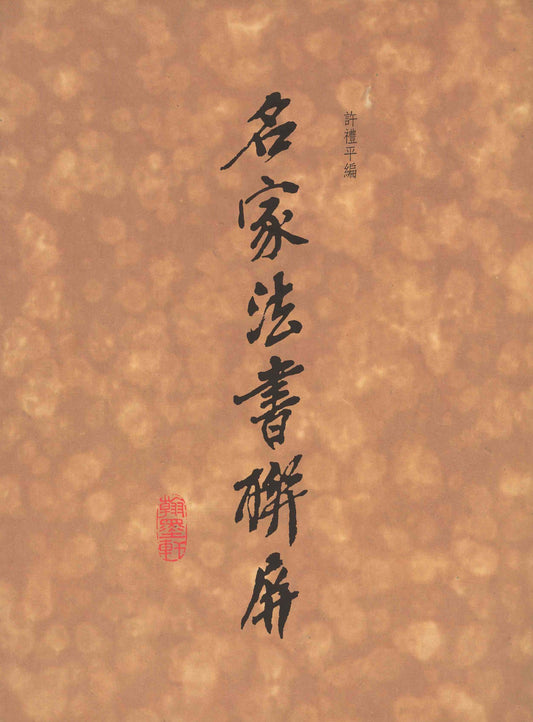 許禮平編
名家法書聯屏
翰墨軒